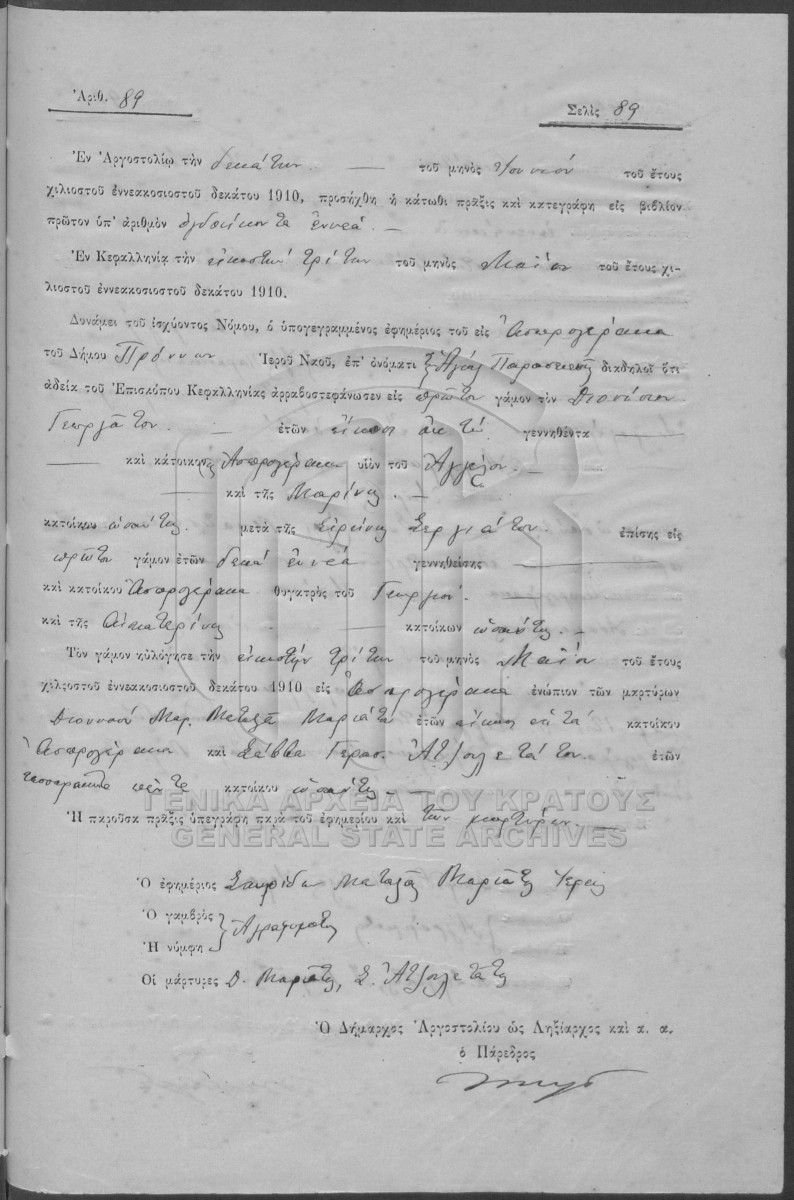 Ἀριθ. 89
Σελὶς 89
Ἐν Ἀργοστολίῳ τὴν δεκάτην — τοῦ μηνὸς Ἰουνίου τοῦ ἔτους
χιλιοστοῦ ἐννεακοσιοστοῦ δεκάτου 1910, προσήχθη ἡ κάτωθι πρᾶξις καὶ κατεγράφη εἰς βιβλίον
πρῶτον ὑπ' ἀριθμὸν ὀγδοήκοντα ἐννέα. —
Ἐν Κεφαλληνίᾳ τὴν εἰκοστὴν τρίτην τοῦ μηνὸς Μαΐου τοῦ ἔτους χι-
λιοστοῦ ἐννεακοσιοστοῦ δεκάτου 1910.
Δυνάμει τοῦ ἰσχύοντος Νόμου, ὁ ὑπογεγραμμένος ἐφημέριος τοῦ εἰς Ἀσπρογέρακα
τοῦ Δήμου Πρόννων Ἱεροῦ Ναοῦ, ἐπ' ὀνόματι Ἁγίας Παρασκευῆς διαδηλοῖ ὅτι
ἀδείᾳ τοῦ Ἐπισκόπου Κεφαλληνίας ἀρραβοστεφάνωσεν εἰς πρῶτον γάμον τὸν Διονύσιον
Γεωργᾶτον — ἐτῶν εἴκοσι ὀκτώ γεννηθέντα —
— καὶ κάτοικον Ἀσπρογέρακα υἱὸν τοῦ Ἀγγέλου —
— καὶ τῆς Μαρίνας. —
κατοίκου ὡσαύτως μετὰ τῆς Εἰρήνης Σεργιάτου ἐπίσης εἰς
πρῶτον γάμον ἐτῶν δεκά ἐννέα γεννηθείσης —
καὶ κατοίκου Ἀσπρογέρακα θυγατρὸς τοῦ Γεωργίου —
καὶ τῆς Αἰκατερίνης — κατοίκων ὡσαύτως. —
Τὸν γάμον ηὐλόγησε τὴν εἰκοστὴν τρίτην τοῦ μηνὸς Μαΐου τοῦ ἔτους
χιλιοστοῦ ἐννεακοσιοστοῦ δεκάτου 1910 εἰς Ἀσπρογέρακα ἐνώπιον τῶν μαρτύρων
Διονυσίου Μαρ. Ματαλᾶ Μαριάτου ἐτῶν εἴκοσι ἑπτά κατοίκου
Ἀσπρογέρακα καὶ Σάββα Γερασ. Ἀτζουλετάτου. ἐτῶν
τεσσαράκοντα πέντε κατοίκου ὡσαύτως —
Ἡ παροῦσα πρᾶξις ὑπεγράφη παρὰ τοῦ ἐφημερίου καὶ τῶν μαρτύρων. —
ΓΕΝΙΚΑ ΑΡΧΕΙΑ ΤΟΥ ΚΡΑΤΟΥΣ
GENERAL STATE ARCHIVES
Ὁ ἐφημέριος Σπυρίδων Ματαλᾶς Μαριᾶτος Ἱερεὺς
Ὁ γαμβρὸς
Ἀγράμματοι
Ἡ νύμφη
Οἱ μάρτυρες Δ. Μαριᾶτος, Σ. Ἀτζουλετᾶτος
Ὁ Δήμαρχος Ἀργοστολίου ὡς Ληξίαρχος καὶ α. α.
ὁ Πάρεδρος